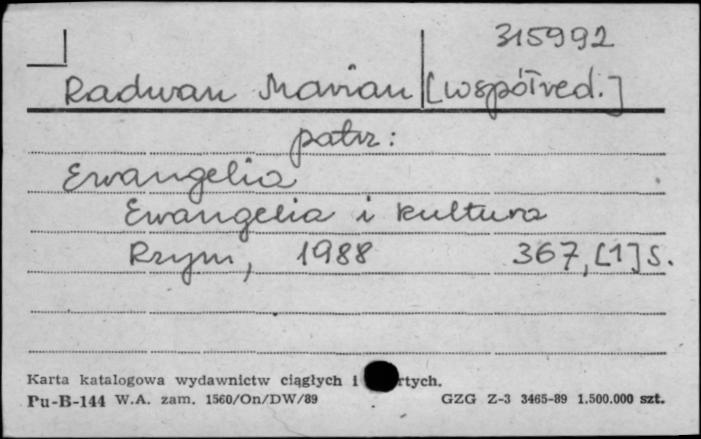 315992
Radwan Marian [współred.]
patrz:
Ewangelia
Ewangelia i kultura
Rzym, 1988 367, [1] s.
Karta katalogowa wydawnictw ciągłych i rtych.
Pu-B-144 W.A. zam. 1560/On/DW/89 GZG Z-3 3465-89 1.500.000 szt.